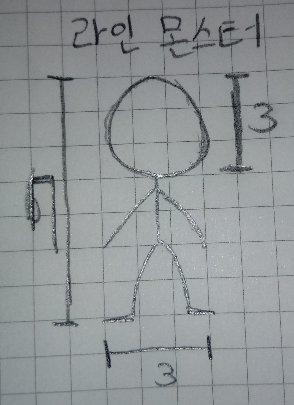 라인 몬스터
3
7
3